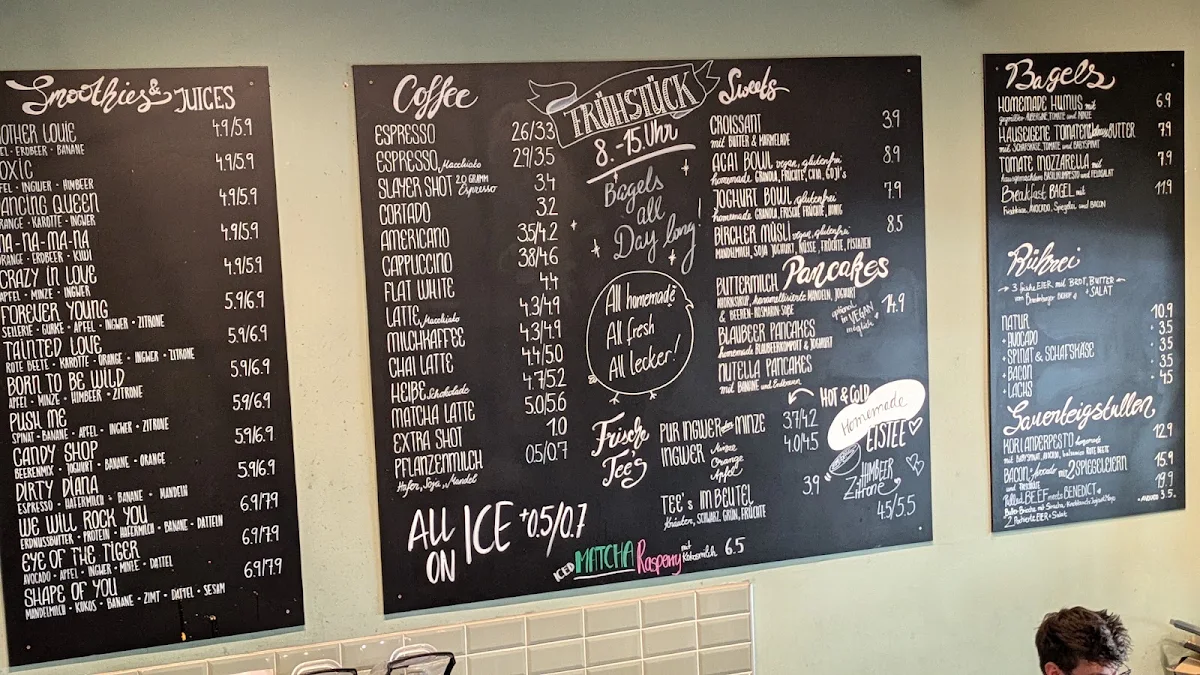 Smoothies & JUICES
OTHER LOUIE 4.9/5.9
EL - ERDBEER - BANANE
OXIC 4.9/5.9
FEL - INGWER - HIMBEER
ANCING QUEEN 4.9/5.9
RANGE - KAROTTE - INGWER
MA-NA-MA-NA 4.9/5.9
ORANGE - ERDBEER - KIWI
CRAZY IN LOVE 4.9/5.9
APFEL - MINZE - INGWER
FOREVER YOUNG 5.9/6.9
SELLERIE - GURKE - APFEL - INGWER - ZITRONE
TAINTED LOVE 5.9/6.9
ROTE BEETE - KAROTTE - ORANGE - INGWER - ZITRONE
BORN TO BE WILD 5.9/6.9
APFEL - MINZE - HIMBEER - ZITRONE
PUSH ME 5.9/6.9
SPINAT - BANANE - APFEL - INGWER - ZITRONE
CANDY SHOP 5.9/6.9
BEERENMIX - JOGHURT - BANANE - ORANGE
DIRTY DIANA 5.9/6.9
ESPRESSO - HAFERMILCH - BANANE - MANDELN
WE WILL ROCK YOU 6.9/7.9
ERDNUSSBUTTER - PROTEIN - HAFERMILCH - BANANE - DATTELN
EYE OF THE TIGER 6.9/7.9
AVOCADO - APFEL - INGWER - MINZE - DATTEL
SHAPE OF YOU 6.9/7.9
MANDELMILCH - KOKOS - BANANE - ZIMT - DATTEL - SESAM
Coffee
ESPRESSO 2.6/3.3
ESPRESSO Macchiato 2.9/3.5
SLAYER SHOT 20 GRAMM Espresso 3.4
CORTADO 3.2
AMERICANO 3.5/4.2
CAPPUCCINO 3.8/4.6
FLAT WHITE 4.4
LATTE Macchiato 4.3/4.9
MILCHKAFFEE 4.3/4.9
CHAI LATTE 4.4/5.0
HEIßE Schokolade 4.7/5.2
MATCHA LATTE 5.0/5.6
EXTRA SHOT 1.0
PFLANZENMILCH 0.5/0.7
Hafer, Soja, Mandel
ALL ON ICE +0.5/0.7
FRÜHSTÜCK
8.-15. Uhr
Bagels
all
Day long!
All homemade
All fresh
All lecker!
Frische
Tee's
PUR INGWER oder MINZE 3.7/4.2
INGWER Minze 4.0/4.5
Orange
Apfel
TEE'S IM BEUTEL 3.9
Kräuter, SCHWARZ, GRÜN, FRÜCHTE
ICED MATCHA Rasperry mit Kokosmilch 6.5
Sweets
CROISSANT 3.9
mit BUTTER & MARMELADE
ACAI BOWL vegan, glutenfrei 8.9
homemade GRANOLA, FRÜCHTE, CHIA, GOJI's
JOGHURT BOWL glutenfrei 7.9
homemade GRANOLA, FRISCHE FRÜCHTE, HONIG
BIRCHER MÜSLI vegan, glutenfrei 8.5
MANDELMILCH, SOJA JOGHURT, NÜSSE, FRÜCHTE, PISTAZIEN
Pancakes
BUTTERMILCH
AHORNSIRUP, karamellisierte MANDELN, JOGHURT
& BEEREN-ROSMARIN-SOßE
optional in VEGAN möglich 14.9
BLAUBEER PANCAKES
homemade BLAUBEERKOMPOTT & JOGHURT
NUTELLA PANCAKES
mit BANANE und Erdbeeren
HOT & COLD
Homemade
EISTEE
HIMBEER
Zitrone
4.5/5.5
Bagels
HOMEMADE HUMUS mit 6.9
gegrillter AUBERGINE, TOMATE und MINZE
HAUSEIGENE TOMATEN BUTTER 7.9
mit SCHAFSKÄSE, TOMATE und BABYSPINAT
TOMATE MOZZARELLA mit 7.9
hausgemachtem BASILIKUMPESTO und FELDSALAT
Breakfast BAGEL mit 11.9
Frischkäse, AVOCADO, Spiegelei und BACON
Rührei
3 frische EIER mit BROT, BUTTER
+ SALAT
NATUR 10.9
+ AVOCADO 3.5
+ SPINAT & SCHAFSKÄSE 3.5
+ BACON 3.5
+ LACHS 4.5
Sauerteigstullen
KORIANDERPESTO 12.9
BACON, Avocado mit 2 SPIEGELEIERN 15.9
Pulled BEEF meets BENEDICT 19.9
2 Pochierte EIER + Salat